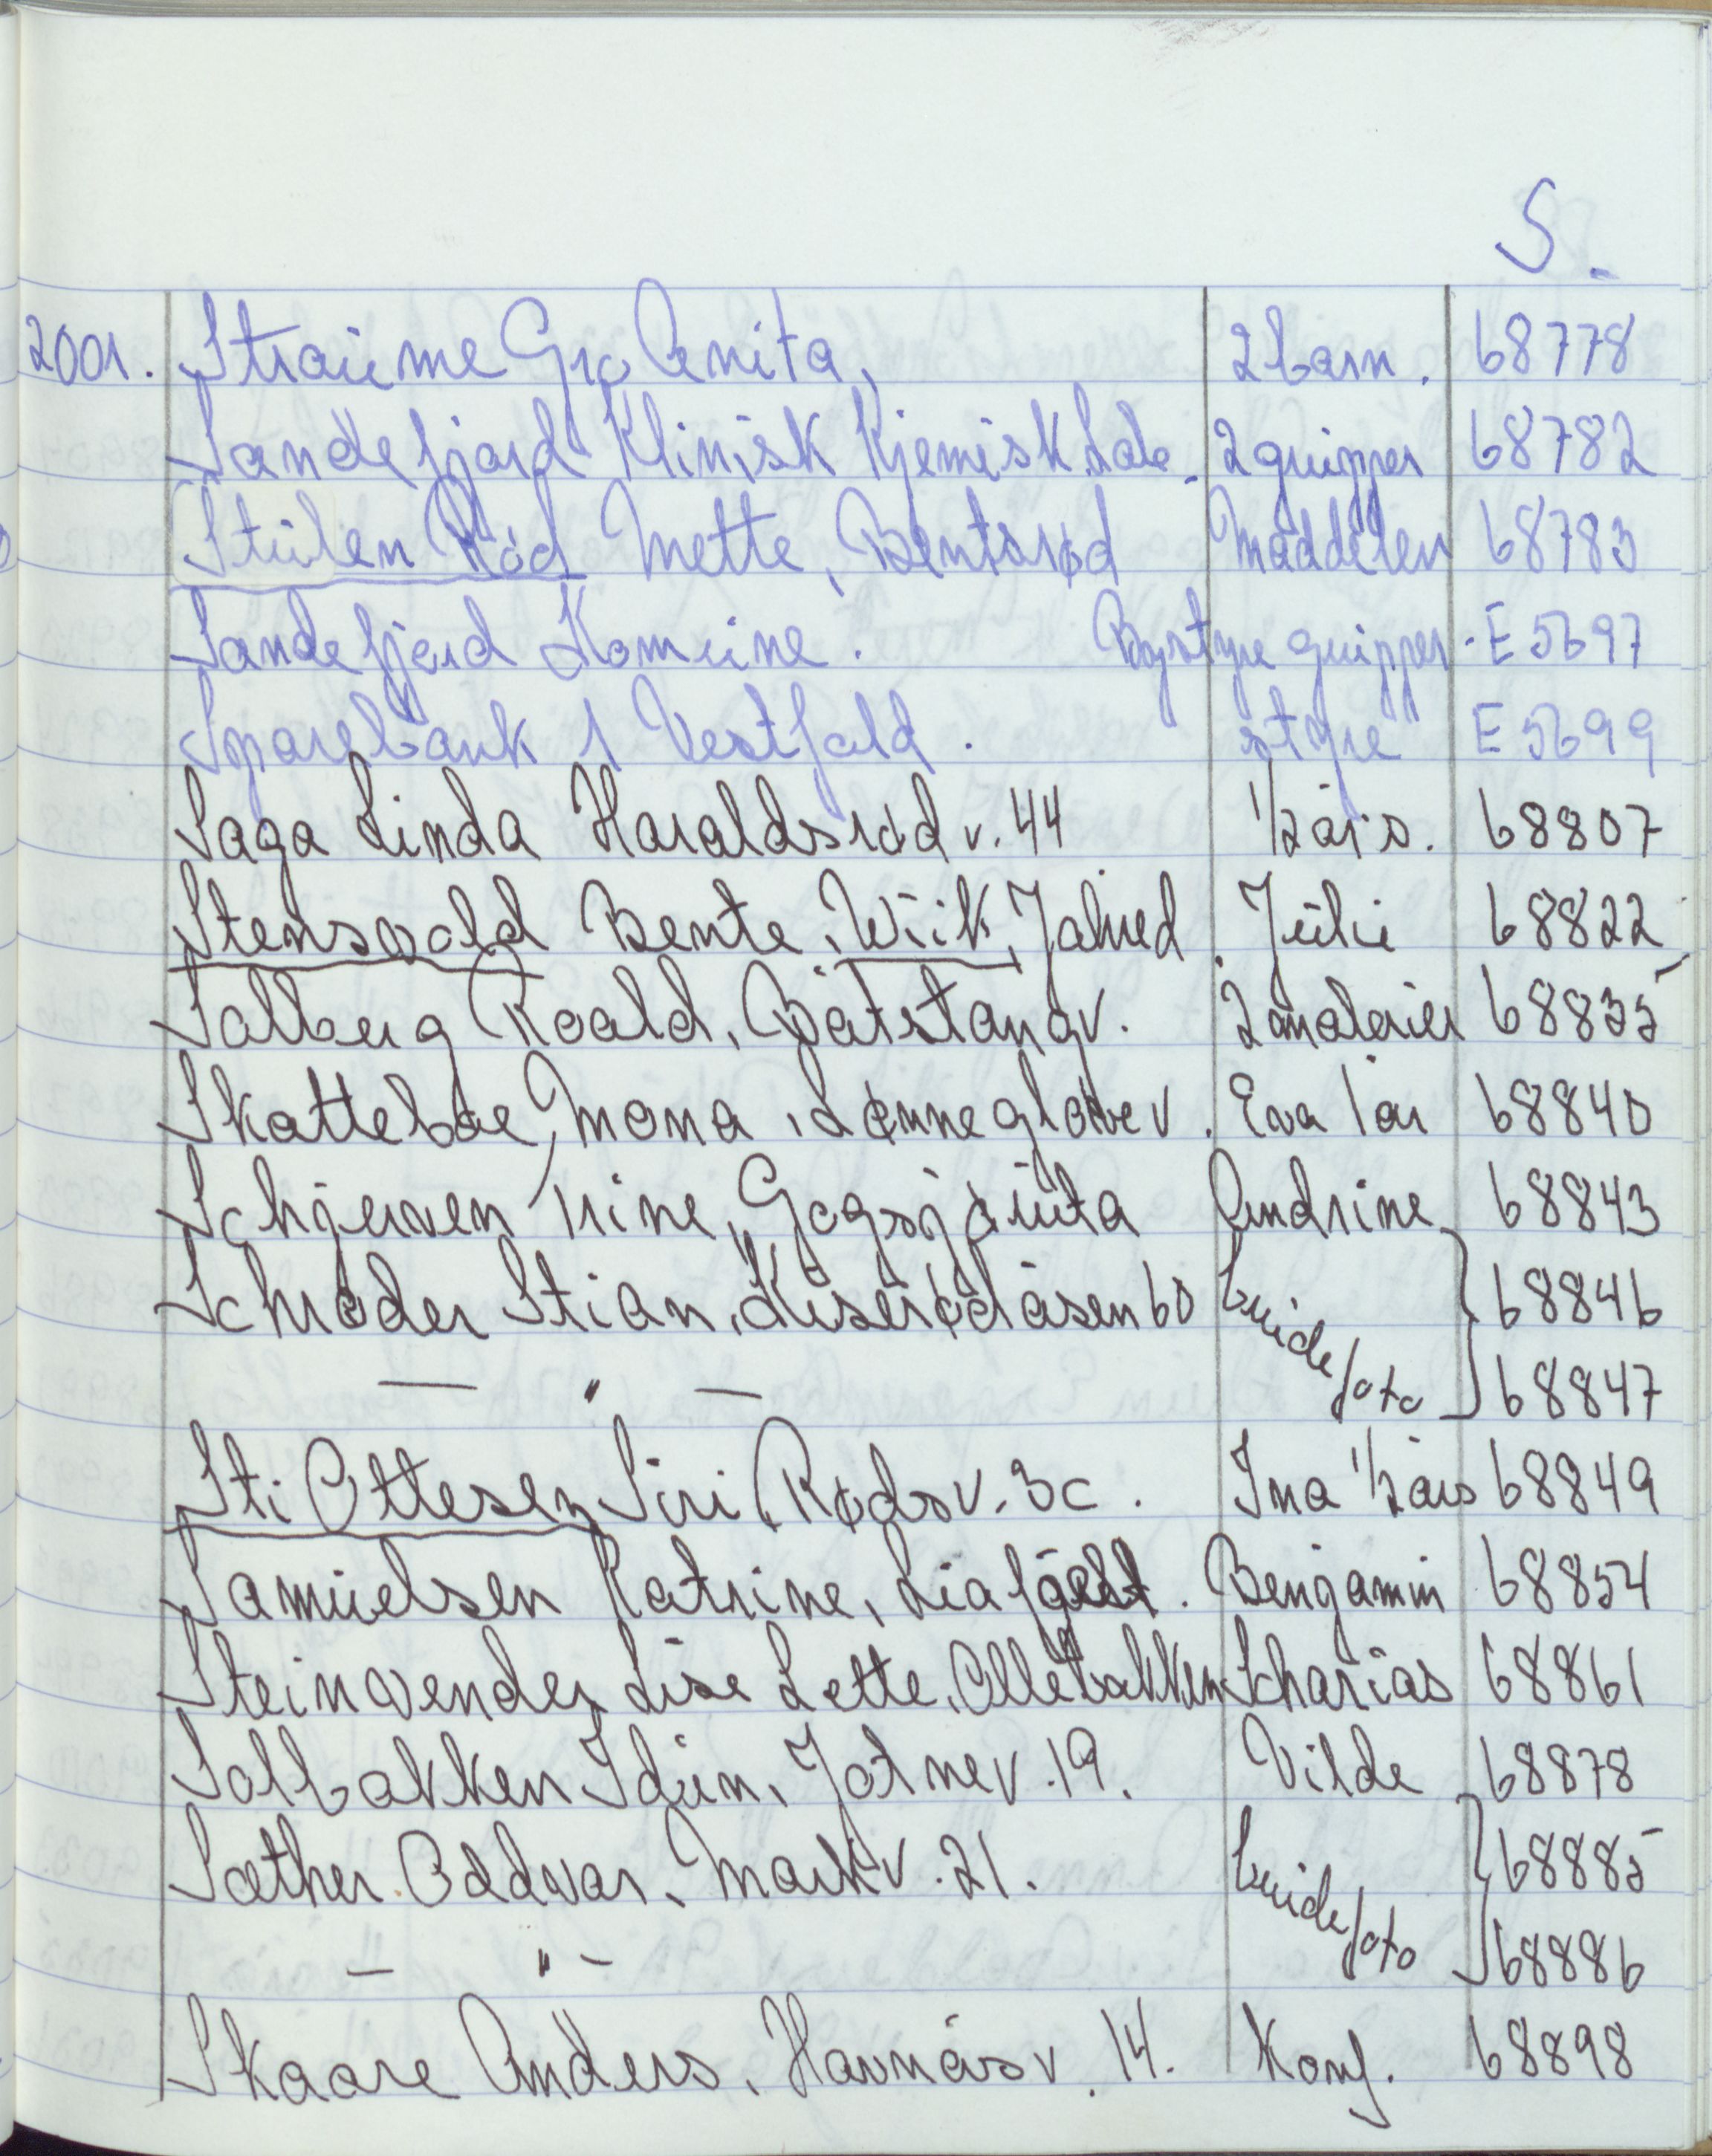 S.
2001. Straume Gro Anita, 2 barn. 68778
Sandefjord Klinisk Kjemisk Lab. 2 grupper 68782
Stulen Rød Mette, Bentsrød Maddelen 68783
Sandefjord Komune. Bystyre grupper - E 5697
Sparebank 1 Vestfold. styre E 5699
Saga Linda Haraldsrød v. 44 1/2 års. 68807
Stensvold Bente, Wiik, Jahred Julie 68822
Solberg Roald, Båtstangv. 2 malerier 68835
Skatteboe, Mona, Lønneglovev. Eva 1 år 68840
Schjerven Trine, Gogsjøruta Andrine 68843
Schrøder Stian, Kriserødåsen 60 brudefoto 68846
— " — 68847
Sti Ottesen Siri, Rødsv. 3c. Ina 1/2 års 68849
Samuelsen Katrine, Liafjell. Benjamin 68854
Steinvender Lise Lotte, Ollebakken Scharias 68861
Solbakken Idun, Jotnev. 19. Vilde 68878
Sæther Oddvar, Markv. 21. brudefoto 68885
— " — 68886
Skaare Anders, Havnåsv. 14. Konf. 68898